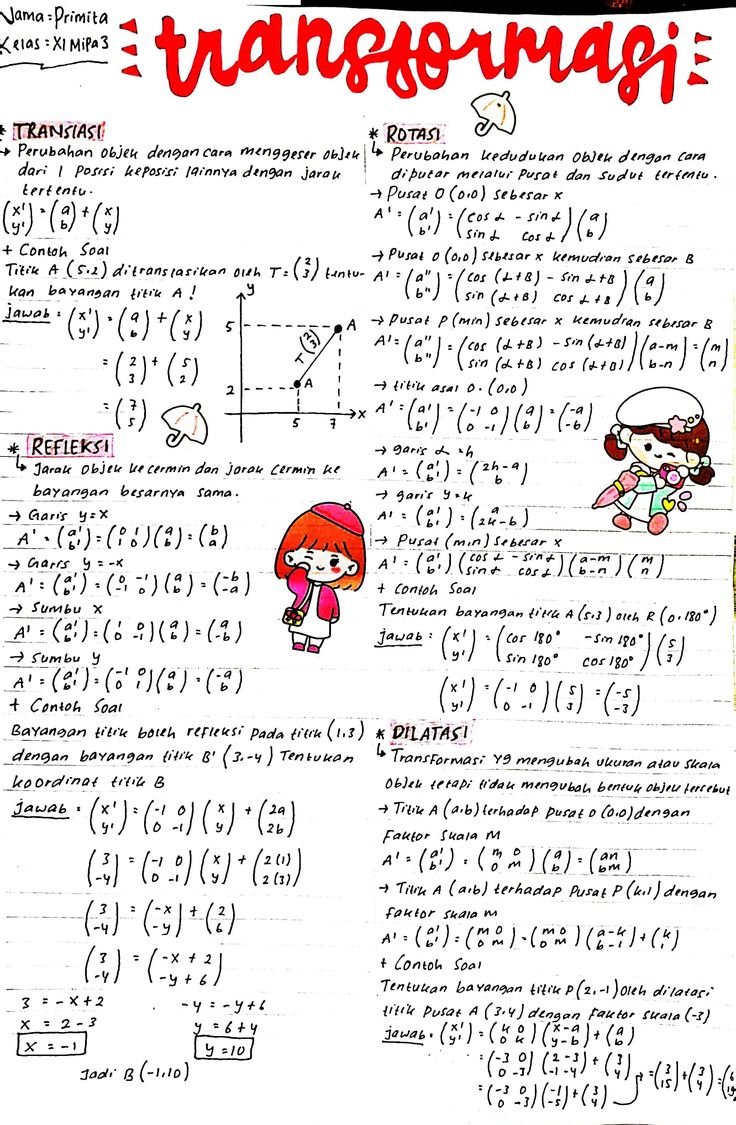 Nama = Primita
Kelas = XI Mipa 3
transformasi
* TRANSLASI
→ Perubahan objek dengan cara menggeser objek
dari 1 posisi keposisi lainnya dengan jarak
tertentu.
(x' y') = (a b) + (x y)
+ Contoh Soal
Titik A (5.2) ditranslasikan oleh T = (2 3) tentu-
kan bayangan titik A !
jawab = (x' y') = (a b) + (x y)
= (2 3) + (5 2)
= (7 5)
y
5
2
5
7
x
A
A
T (2 3)
* REFLEKSI
↳ Jarak objek ke cermin dan jarak cermin ke
bayangan besarnya sama.
→ Garis y = x
A' = (a' b') = (0 1 1 0)(a b) = (b a)
→ Garis y = -x
A' = (a' b') = (0 -1 -1 0)(a b) = (-b -a)
→ Sumbu x
A' = (a' b') = (1 0 0 -1)(a b) = (a -b)
→ Sumbu y
A' = (a' b') = (-1 0 0 1)(a b) = (-a b)
+ Contoh Soal
Bayangan titik b oleh refleksi pada titik (1,3)
dengan bayangan titik B' (3,-4) Tentukan
koordinat titik B
jawab = (x' y') = (-1 0 0 -1)(x y) + (2a 2b)
(3 -4) = (-1 0 0 -1)(x y) + (2(1) 2(3))
(3 -4) = (-x -y) + (2 6)
(3 -4) = (-x + 2 -y + 6)
3 = -x + 2
-4 = -y + 6
x = 2 - 3
y = 6 + 4
x = -1
y = 10
Jadi B (-1,10)
* ROTASI
↳ Perubahan kedudukan objek dengan cara
diputar melalui pusat dan sudut tertentu.
→ Pusat O (0,0) sebesar x
A' = (a' b') = (cos α - sin α sin α cos α)(a b)
→ Pusat O (0,0) sebesar x kemudian sebesar B
A' = (a" b") = (cos (α+B) - sin (α+B) sin (α+B) cos (α+B)(a b)
→ Pusat P (m,n) sebesar x kemudian sebesar B
A' = (a" b") = (cos (α+B) - sin (α+B) sin (α+B) cos (α+B))(a-m b-n) = (m n)
→ titik asal O. (0,0)
A' = (a' b') = (-1 0 0 -1)(a b) = (-a -b)
→ garis α = h
A' = (a' b') = (2h-a b)
→ garis y = k
A' = (a' b') = (a 2k-b)
→ Pusat (m,n) sebesar x
A' = (a' b')(cos α - sin α sin α cos α)(a-m b-n)(m n)
+ Contoh Soal
Tentukan bayangan titik A (5,3) oleh R (0.180°)
jawab : (x' y') = (cos 180° -sin 180° sin 180° cos 180°)(5 3)
(x' y') = (-1 0 0 -1)(5 3) = (-5 -3)
* DILATASI
↳ Transformasi yg mengubah ukuran atau skala
objek tetapi tidak mengubah bentuk objek tersebut
→ Titik A (a,b) terhadap pusat O (0,0) dengan
Faktor skala M
A' = (a' b') = (m 0 0 m)(a b) = (an bm)
→ Titik A (a,b) terhadap Pusat P (k,l) dengan
faktor skala m
A' = (a' b') = (m 0 0 m) - (m 0 0 m)(a-k b-l) + (k l)
+ Contoh Soal
Tentukan bayangan titik P (2,-1) oleh dilatasi
titik Pusat A (3,4) dengan faktor skala (-3)
jawab = (x' y') = (k 0 0 k)(x-a y-b) + (a b)
= (-3 0 0 -3)(2-3 -1-4) + (3 4)
= (-3 0 0 -3)(-1 -5) + (3 4) → = (3 15) + (3 4) = (6 19